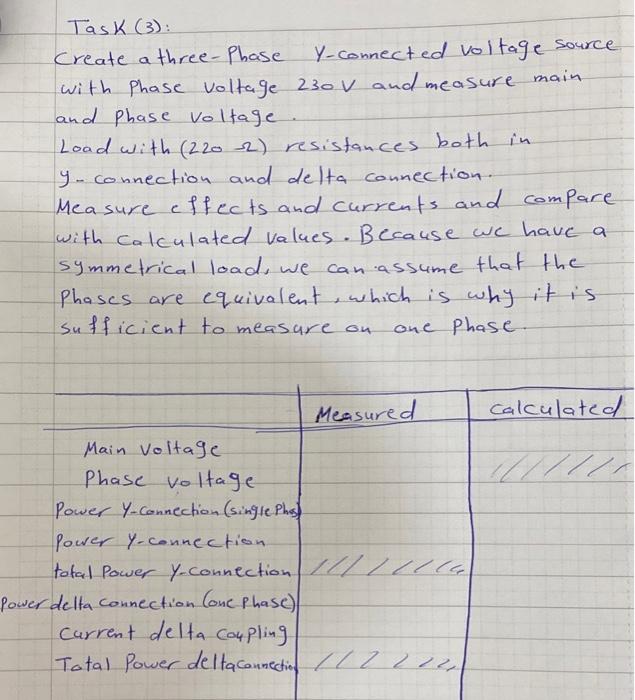 Task (3):
Create a three-Phase Y-connected voltage source
with Phase Voltage 230 V and measure main
and Phase Voltage.
Load with (220 Ω) resistances both in
y-connection and delta connection.
Measure effects and currents and compare
with calculated values. Because we have a
symmetrical load, we can assume that the
Phases are equivalent, which is why it is
sufficient to measure on one Phase.
Measured calculated
Main Voltage
Phase voltage
Power Y-connection (single Phas)
Power Y-connection
total Power Y-connection
Power delta connection (one phase)
Current delta coupling
Total Power delta connection